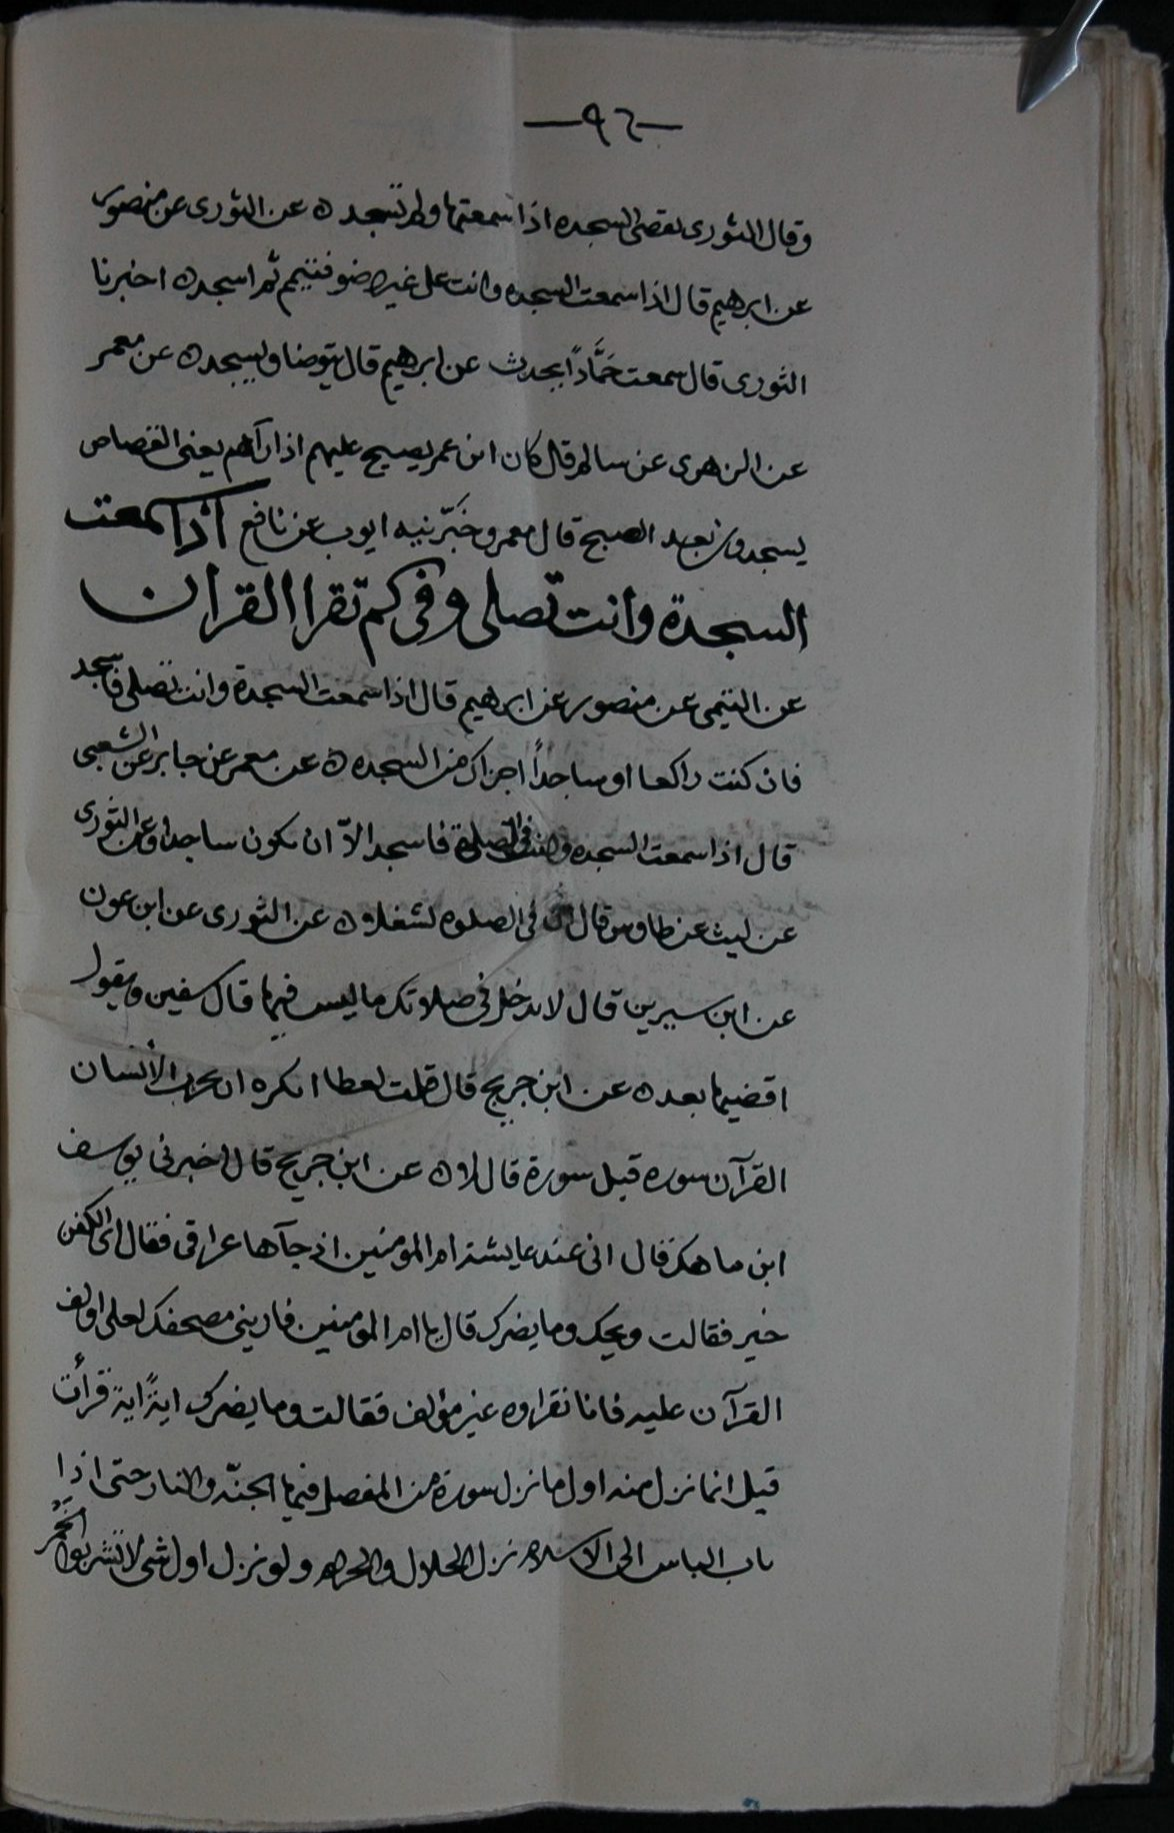 —٩٦—
وقال الثورى يقضى السجده اذا سمعتها ولم تسجد ٥ عن الثورى عن منصور
عن ابرهيم قال اذا سمعت السجده وانت على غير وضو فتيمم ثم اسجد ٥ اخبرنا
الثورى قال سمعت حَمَّادًا يحدث عن ابرهيم قال يتوضا ويسجد ٥ عن معمر
عن الزهرى عن سالم قال كان ابن عمر يصيح عليهم اذا رآهم يعنى القصاص
يسجدون بعد الصبح قال معمر وخَبّرنيه ايوب عن نافع اذا سمعت
السجدة وانت تصلى وفى كم تقرا القران
عن التيمى عن منصور عن ابرهيم قال اذا سمعت السجدة وانت تصلى فاسجد
فان كنت راكعا او ساجداً اجزاك من السجده ٥ عن معمر عن جابر عن الشعبى
قال اذا سمعت السجده وانت فى الصلوة فاسجد الاّ ان تكون ساجدا وعن الثورى
عن ليث عن طاوس قال ان فى الصلوه لشغلا ٥ عن الثورى عن ابن عون
عن ابن سيرين قال لا تدخل فى صلاتك ما ليس فيها قال سفين ويقول
اقضيها بعد ٥ عن ابن جريج قال قلت لعطا اتكره ان يحرب الأنسان
القرآن سوره قبل سورة قال لا ٥ عن ابن جريج قال اخبرنى يوسف
ابن ماهك قال انى عند عايشة ام المومنين اذ جآها عراقى فقال اى الكفن
خير فقالت ويحك وما يضرك قال يا ام المومنين فارينى مصحفك لعلى اولف
القرآن عليه فانا نقراوه غير مؤلف فقالت وما يضرك ايةً اية قرأت
قبل انما نزل منه اول ما نزل سورة من المفصل فيها الجنّه والنار حتى اذا
ناب الناس الى الاسلام نزل الحلال والحرام ولو نزل اول شى لا تشربوا الخَمْر